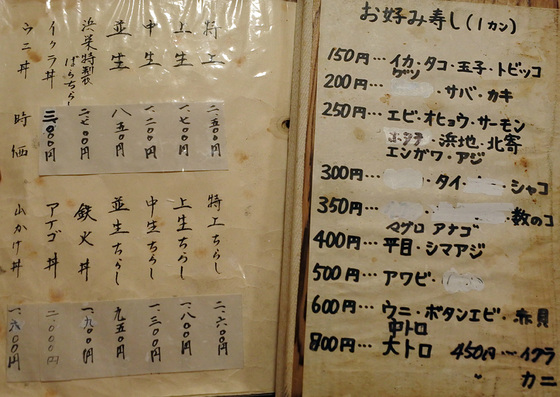 特上 二、五〇〇円
上生 一、七〇〇円
中生 一、二〇〇円
並生 八五〇円
浜栄特製ばらちらし 二、七〇〇円
イクラ丼 三、〇〇〇円
ウニ丼 時価
特上ちらし 二、六〇〇円
上生ちらし 一、八〇〇円
中生ちらし 一、三〇〇円
並生ちらし 九五〇円
鉄火丼 一、九〇〇円
アナゴ丼 二、〇〇〇円
山かけ丼
お好み寿し(1カン)
150円…イカ・タコ・玉子・トビッコ
ゲソ
200円… ・サバ・カキ
250円…エビ・オヒョウ・サーモン
ホタテ・浜地・北寄
エンガワ・アジ
300円… ・タイ・ シャコ
350円… ・ 数のコ
マグロ アナゴ
400円…平目・シマアジ
500円…アワビ・
600円…ウニ・ボタンエビ・赤貝
中トロ
800円…大トロ 450円〜イクラ
〃 カニ